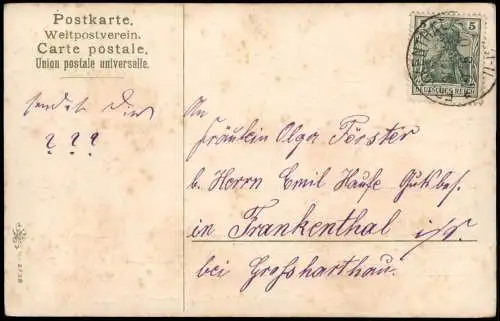 Postkarte.
Weltpostverein.
Carte postale.
Union postale universelle.
5
DEUTSCHES REICH
sendet Dir
? ? ?
An
Fräulein Olga Förster
b. Herrn Emil Haufe Gutsbes.
in Frankenthal
bei Großharthau.